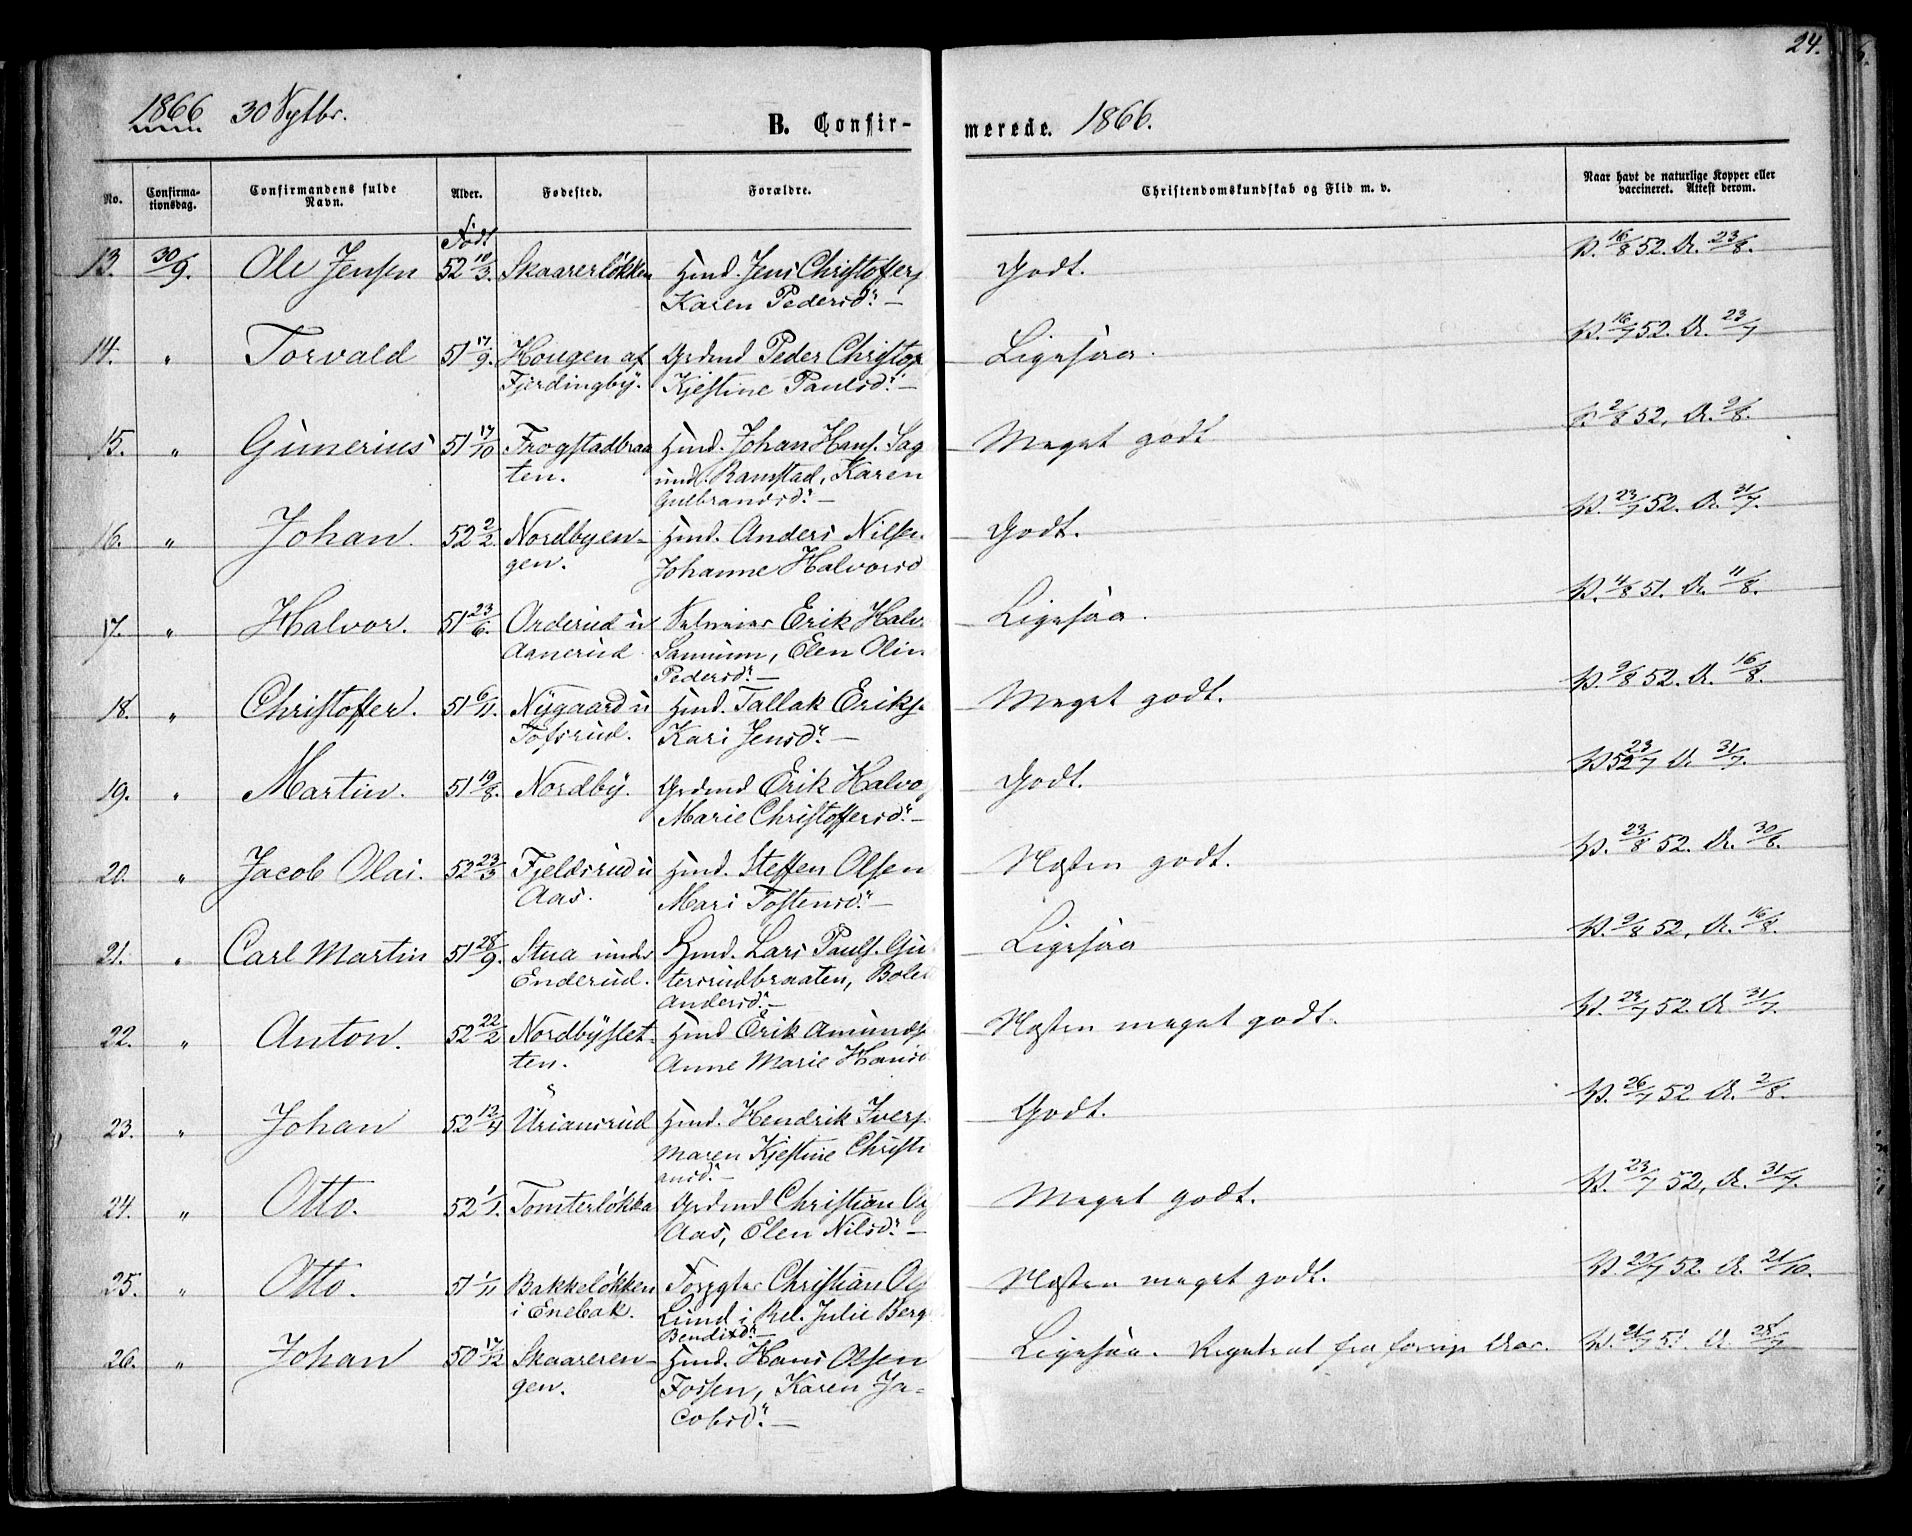 24.
1866 30 Sptbr.
B. Confir-
merede. 1866.
No.
Confirma-
tionsdag.
Confirmandens fulde
Navn.
Alder.
Fødested.
Forældre.
Christendomskundskab og Flid m. v.
Naar havt de naturlige Kopper eller
vaccineret. Attest derom.
Født
13. 30/9. Ole Jensen 52 10/3. Skaarerløkken Huusmd. Jens Christoffers
Karen Pedersd. —
Godt. V. 16/8 52. A. 23/8.
14. " Torvald 51 17/9. Hougen af Grdmd Peder Christop
Fjerdingby. Kjestine Paulsd. —
Ligesaa. V. 16/7 52. A. 23/7
15. " Gunerius 51 17/10 Frogstadbraa Hmd. Johan Hans. Sag
ten. und. Ramstad, Karen
Gulbrandsd. —
Meget godt V. 2/8 52, A. 9/8.
16. " Johan. 52 2/2. Nordbyen- Hmd. Anders Nilsen
gen. Johanne Halvorsd
Godt. V. 23/7 52. A. 31/7.
17. " Halvor. 51 23/6. Orderud u Selveier Erik Halv
Aanerud Sannum, Elen Olin
Pedersd. —
Ligesaa. V. 4/8 51. A. 11/8.
18. " Christoffer. 51 6/11. Nygaard u Hmd. Tallak Eriks
Tofsrud. Kari Jensd. —
Meget godt. V. 9/8 52. A. 16/8.
19. " Martin. 51 19/8. Nordby. Grdmd Erik Halvo
Marie Christoffersd. —
Godt. V 52 23/7 A 31/7.
20. " Jacob Olai. 52 23/3 Fjeldsrud u Hmd. Steffen Olsen
Aas. Mari Tostensd. —
Næsten godt. V. 23/8 52. A. 30/8.
21. " Carl Martin 51 28/9. Stua under Hmd. Lars Pauls. Gu
Enderud. tersrudbraaten, Bolet
Andersd. —
Ligesaa V. 9/8 52, A. 16/8.
22. " Anton. 52 22/2 Nordbyslet- Hmd Erik Amunds
ten. Anne Marie Hansd
Næsten meget godt. V. 23/7 52. A. 31/7.
23. " Johan 52 12/4 Uriansrud Hmd. Hendrik Ivers
Maren Kjestine Christi
ansd. —
Godt. V. 26/7 52 A. 2/8.
24. " Otto. 52 1/1. Tomterløkka Grdmd Christian O
Aas, Elen Nilsd. —
Meget godt. V. 23/7 52, A. 31/7.
25. " Otto. 51 1/11 Bakkeløkken Forpgter Christian Ols
i Enebak. Lund i Rel. Julie Berg
Bendixd. —
Næsten meget godt. V. 22/7 52. A. 21/10.
26. " Johan 50 17/12 Skaareren- Hmd. Hans Olsen
gen. Fossen, Karen Ja-
cobsd. —
Ligesaa. fra forrige Aar. V. 21/7 51. A. 28/7